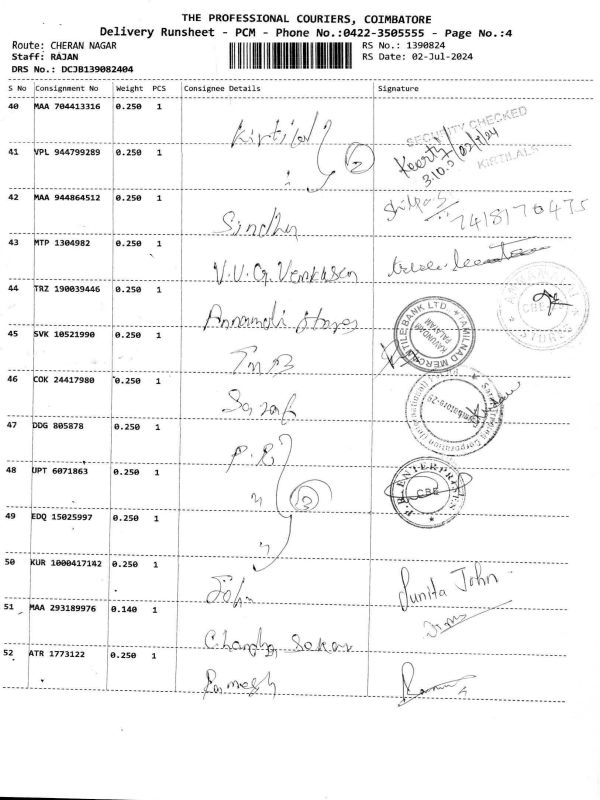 THE PROFESSIONAL COURIERS, COIMBATORE
Delivery Runsheet - PCM - Phone No.:0422-3505555 - Page No.:4
Route: CHERAN NAGAR RS No.: 1390824
Staff: RAJAN RS Date: 02-Jul-2024
DRS No.: DCJB139082404
S No Consignment No Weight PCS Consignee Details Signature
40 MAA 704413316 0.250 1
Kirtilal SECURITY CHECKED
41 VPL 944799289 0.250 1
" 2 Keerthi 02/7/24
3.10. KIRTILALS
42 MAA 944864512 0.250 1
Sindhu 7418170475
43 MTP 1304982 0.250 1
V.V.G. Venkatesa
44 TRZ 190039446 0.250 1
Annamali Stores ANNAMALAI STORES CBE
45 SVK 10521990 0.250 1
TMB TAMILNAD MERCANTILE BANK LTD KAVUNDAM PALAYAM
46 COK 24417980 0.250 1
Saraf Coimbatore-29
47 DDG 805878 0.250 1
P.R
48 UPT 6071863 0.250 1
" 3 P.R. ENTERPRISES CBE
49 EDQ 15025997 0.250 1
"
50 KUR 1000417142 0.250 1
John Sunita John
51 MAA 293189976 0.140 1
Chandra Sekar
52 ATR 1773122 0.250 1
Ramesh